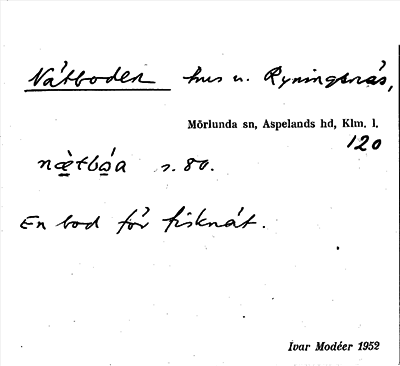 Nätboden hus u. Ryningsnäs,
Mörlunda sn, Aspelands hd, Klm. l.
120
næ̀tbó̱a s. 80.
En bod för fisknät.
Ivar Modéer 1952